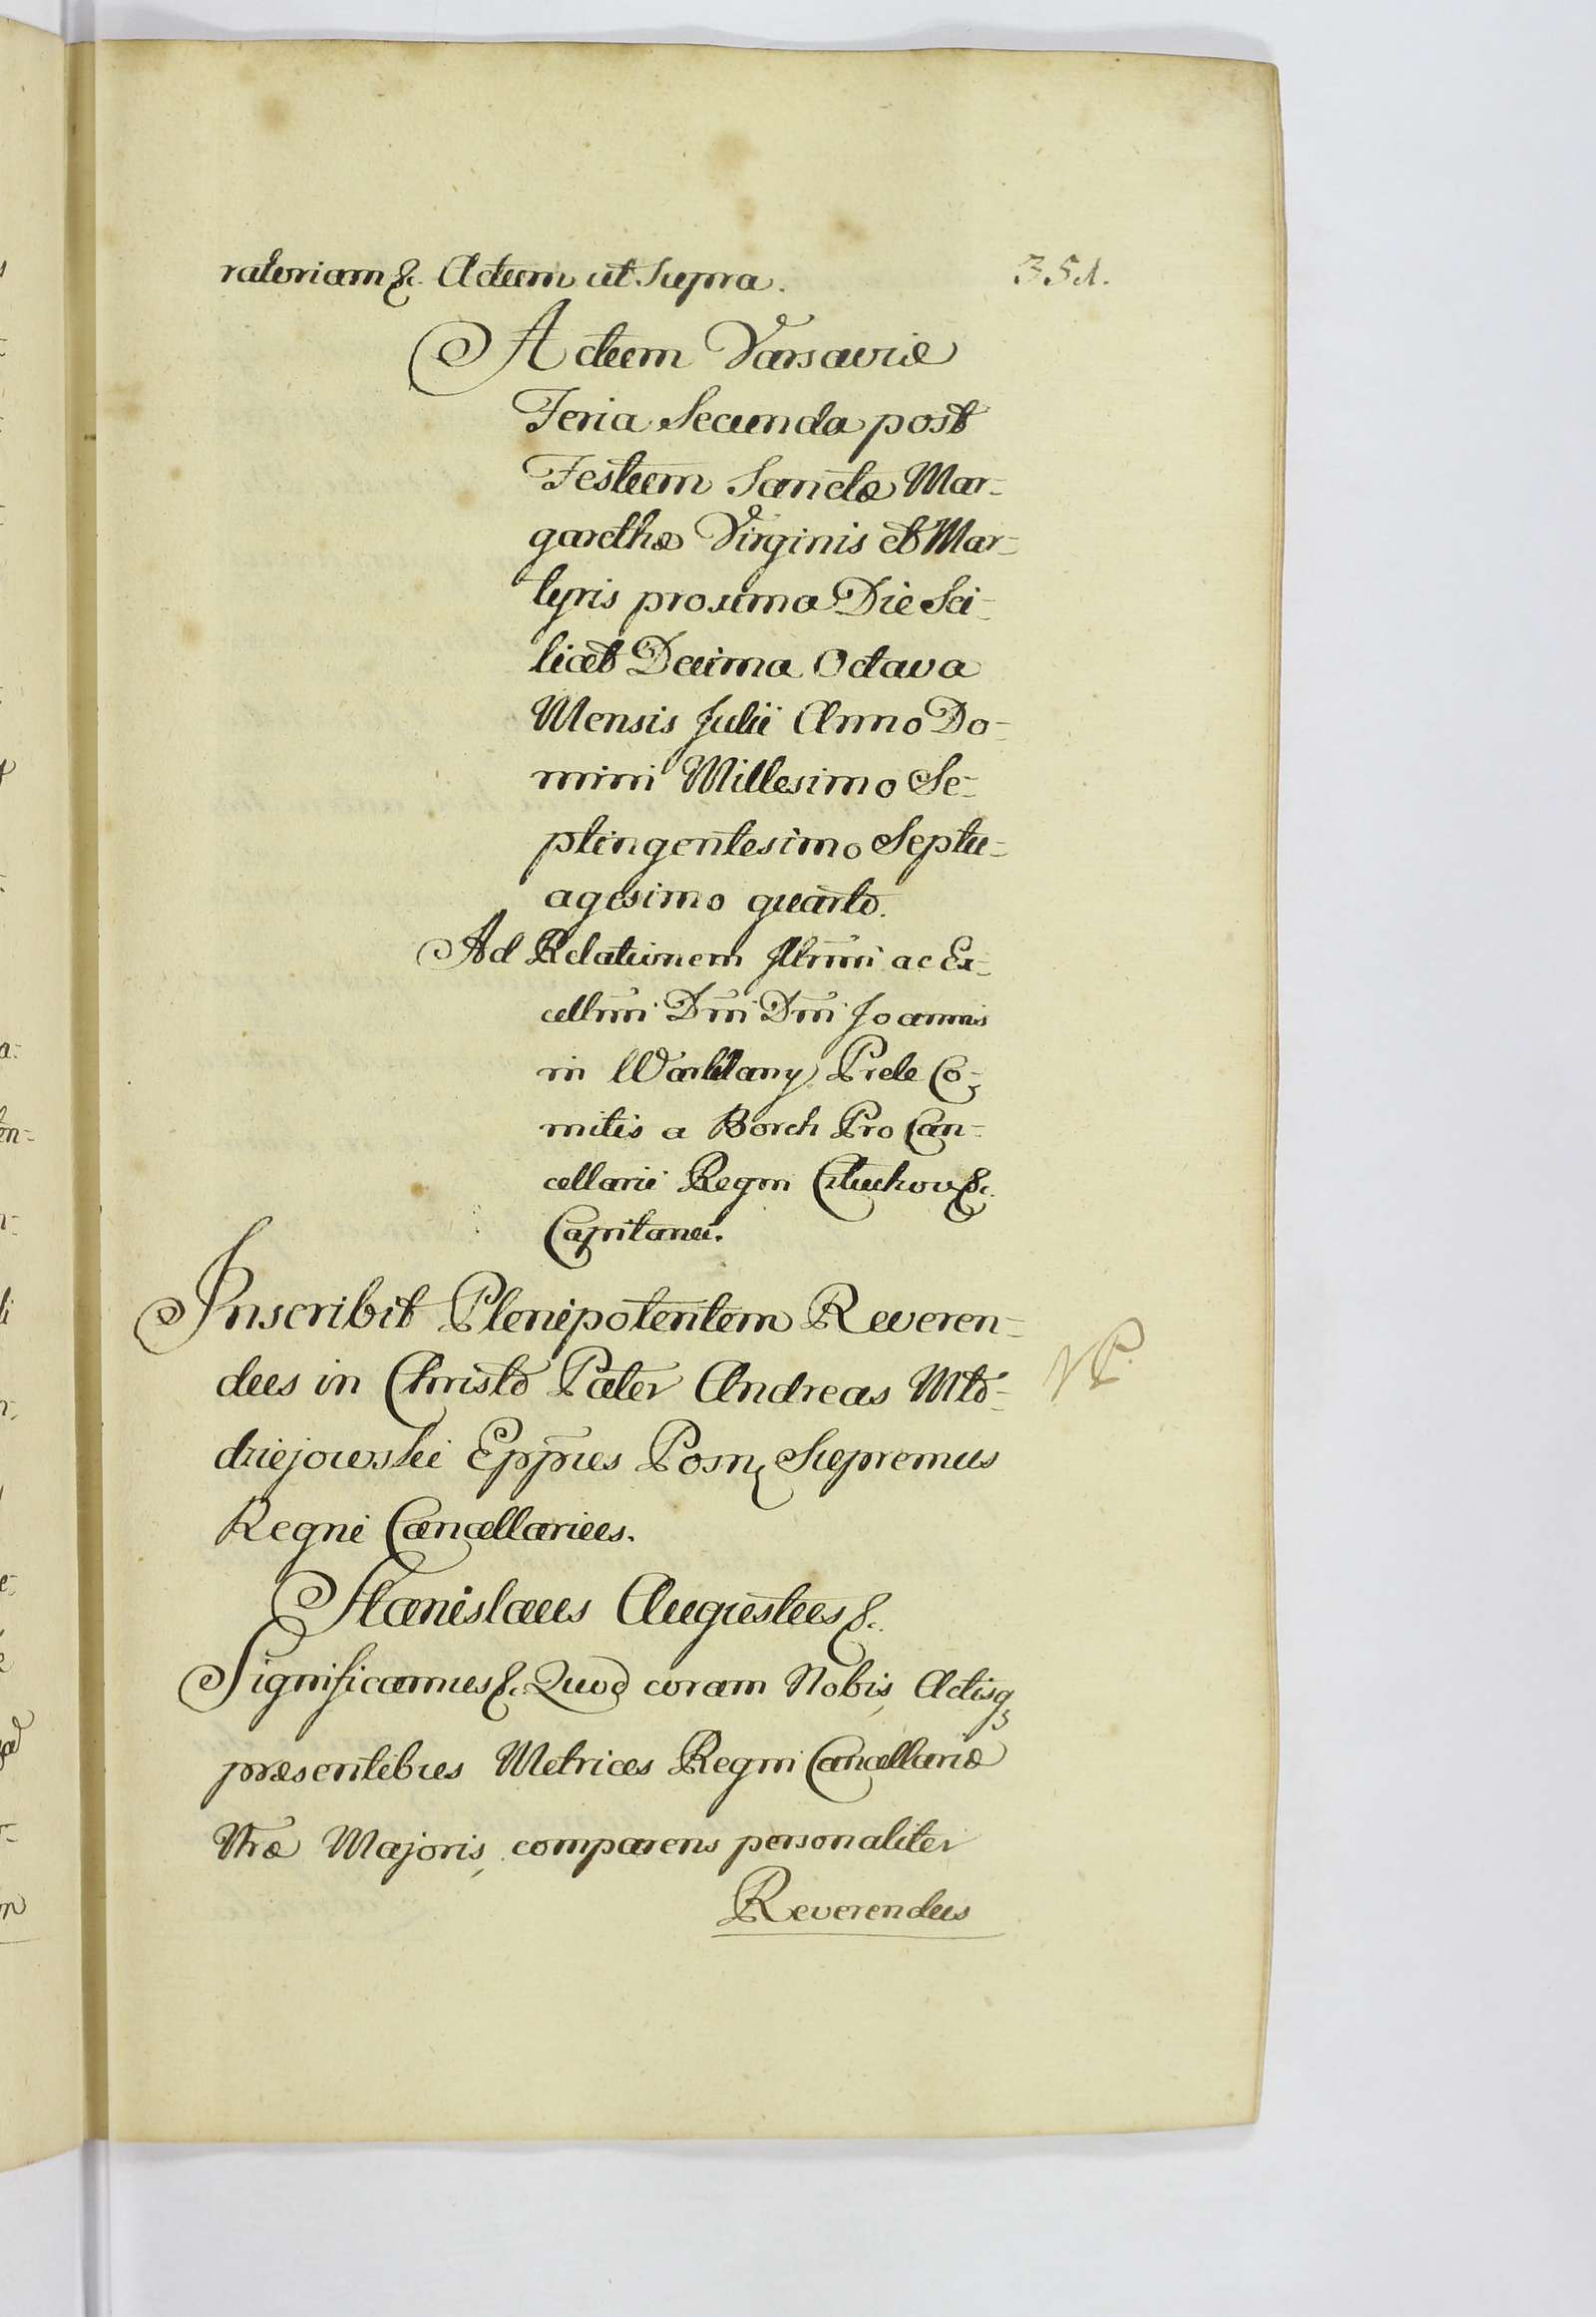 ratoriam &c. Actum ut supra. 351.
Actum Varsaviæ
Feria Secunda post
Festum Sanctæ Mar-
garethæ Virginis et Mar-
tyris proxima Die Sci-
licet Decima Octava
Mensis Julii Anno Do-
mini Millesimo Se-
ptingentesimo Septu-
agesimo quarto.
Ad Relationem Illrmi ac Ex-
cellmi Dni Dni Joannis
in Warklany Prele Co-
mitis a Borch Pro Can-
cellarii Regni Cztuchov &c.
Capitanei.
Inscribit Plenipotentem Reveren-
dus in Christo Pater Andreas Mło-
dziejowski Eppus Posn, Supremus
Regni Cancellarius.
Stanislaus Augustus &c.
Significamus &c. Quod coram Nobis, Actisq
præsentibus Metrices Regni Cancellariæ
Nræ Majoris, comparens personaliter
Reverendus